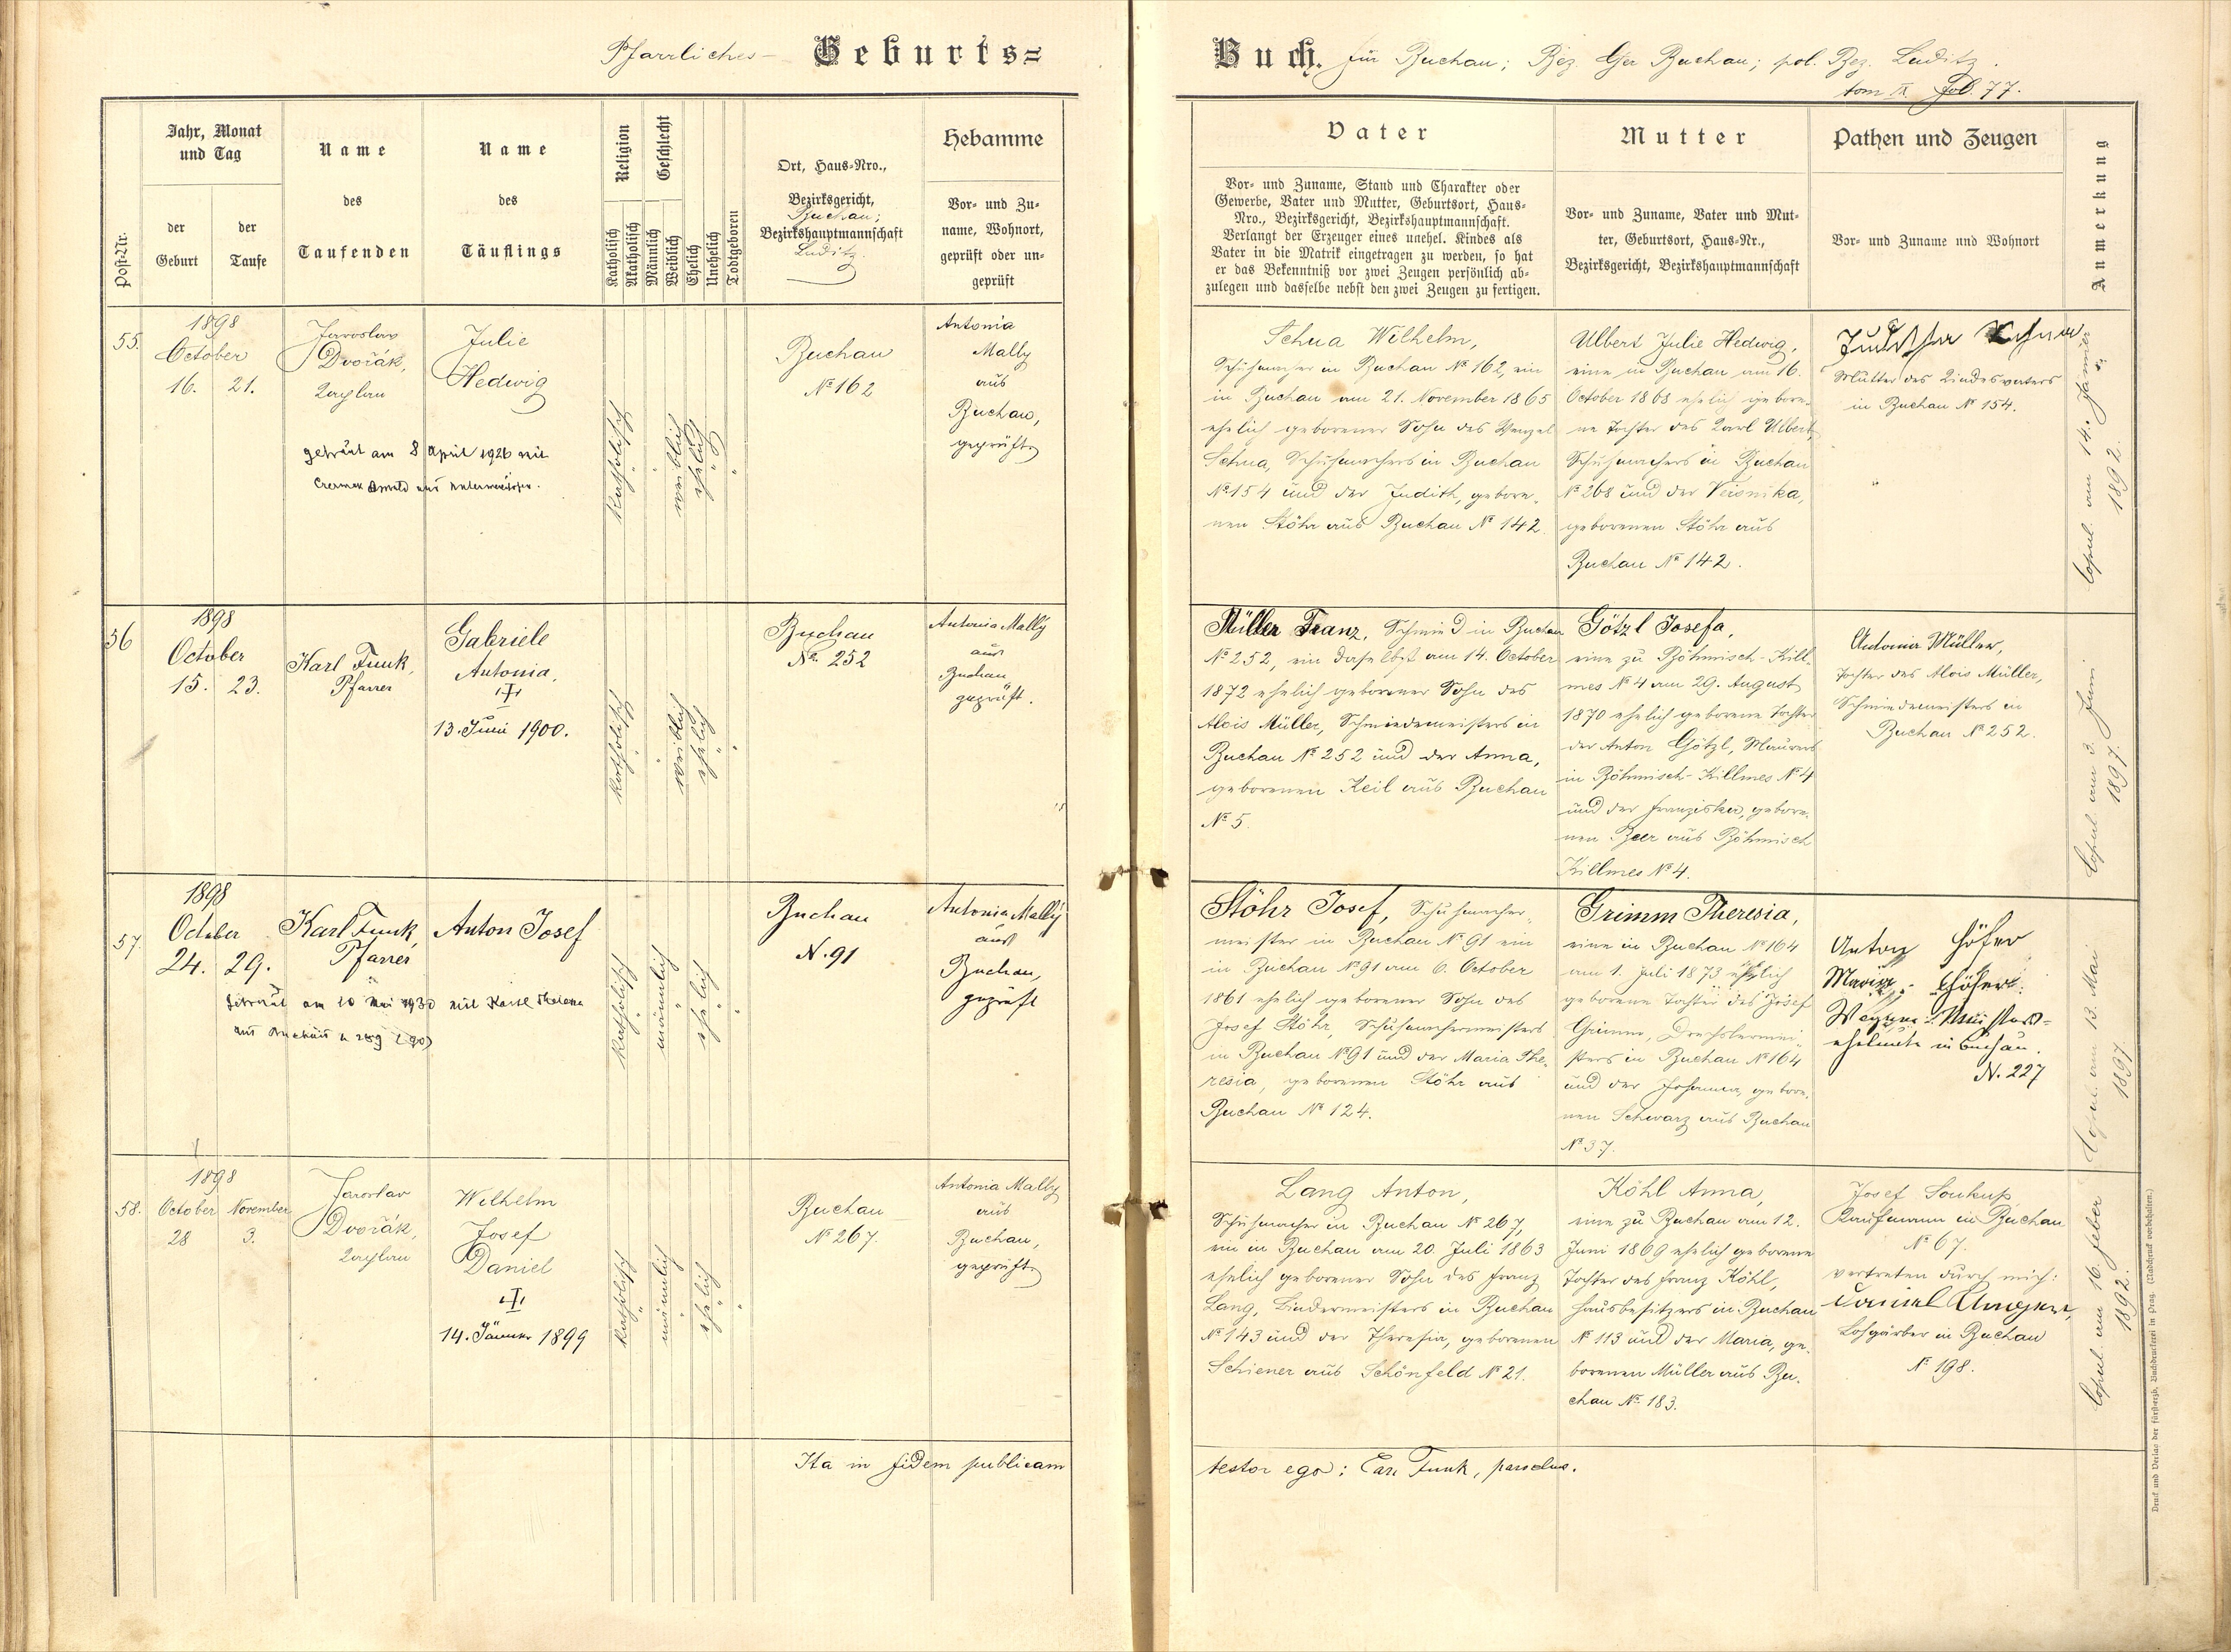 Pfarrliches Geburts=
Post-Nr.
Jahr, Monat
und Tag
der
Geburt
der
Taufe
Name
des
Taufenden
Name
des
Täuflings
Religion
Katholisch
Akatholisch
Geschlecht
Männlich
Weiblich
Ehelich
Unehelich
Todtgeboren
Ort, Haus-Nro.,
Bezirksgericht,
Buchau;
Bezirkshauptmannschaft
Luditz.
Hebamme
Vor- und Zu-
name, Wohnort,
geprüft oder un-
geprüft
55.
1898
October
16. 21.
Jaroslav
Dvořák,
Kaplan
Julie
Hedwig
getraut am 8 April 1926 mit
katholisch
weiblich
ehelich
Buchau
№ 162
Antonia
Mally
aus
Buchau,
geprüft
56
1898
October
15. 23.
Karl Funk,
Pfarrer
Gabriele
Antonia.
13. Juni 1900.
katholisch
weiblich
ehelich
Buchau
№ 252
Antonia Mally
aus
Buchau
geprüft.
57.
1898
October
24. 29.
Karl Funk,
Pfarrer
Anton Josef
Getraut am 10 Mai 1930 mit
katholisch
männlich
ehelich
Buchau
N. 91
Antonia Mally
aus
Buchau,
geprüft
58.
1898
October November
28 3.
Jaroslav
Dvořák,
Kaplan
Wilhelm
Josef
Daniel
14. Jänner 1899
katholisch
männlich
ehelich
Buchau
№ 267.
Antonia Mally
aus
Buchau,
geprüft
Ita in fidem publicam
Buch. für Buchau; Bez. Ger Buchau; pol. Bez. Luditz.
tom IX. Fol. 77.
Vater
Vor- und Zuname, Stand und Charakter oder
Gewerbe, Vater und Mutter, Geburtsort, Haus-
Nro., Bezirksgericht, Bezirkshauptmannschaft.
Verlangt der Erzeuger eines unehel. Kindes als
Vater in die Matrik eingetragen zu werden, so hat
er das Bekenntniß vor zwei Zeugen persönlich ab-
zulegen und dasselbe nebst den zwei Zeugen zu fertigen.
Mutter
Vor- und Zuname, Vater und Mut-
ter, Geburtsort, Haus-Nr.,
Bezirksgericht, Bezirkshauptmannschaft
Pathen und Zeugen
Vor- und Zuname und Wohnort
Anmerkung
Schua Wilhelm,
Schuhmacher in Buchau № 162, ein
in Buchau am 21. November 1865
ehelich geborener Sohn des Wenzel
Schua, Schuhmachers in Buchau
№ 154 und der Judith, gebore-
nen Stöhr aus Buchau № 142.
Ulbert Julie Hedwig,
eine in Buchau am 16.
October 1868 ehelich gebore-
ne Tochter des Karl Ulbert,
Schuhmachers in Buchau
№ 268 und der Veronika,
geborenen Stöhr aus
Buchau № 142.
Mutter des Kindesvaters
in Buchau № 154.
Copul. am 14. Jänner
1892.
Müller Franz, Schmied in Buchau
№ 252, ein daselbst am 14. October
1872 ehelich geborener Sohn des
Alois Müller, Schmiedemeisters in
Buchau № 252 und der Anna,
geborenen Keil aus Buchau
№ 5.
Götzl Josefa,
eine zu Böhmisch-Kill-
mes № 4 am 29. August
1870 ehelich geborene Tochter
der Anton Götzl, Maurers
in Böhmisch-Killmes № 4
und der Franziska, gebore-
nen Beer aus Böhmisch
Killmes № 4.
Antonia Müller,
Tochter des Alois Müller,
Schmiedemeisters in
Buchau № 252.
Copul. am 3. Juni
1897.
Stöhr Josef, Schuhmacher-
meister in Buchau № 91 ein
in Buchau № 91 am 6. October
1861 ehelich geborener Sohn des
Josef Stöhr, Schuhmachermeisters
in Buchau № 91 und der Maria The-
resia, geborenen Stöhr aus
Buchau № 124.
Grimm Theresia,
eine in Buchau № 164
am 1. Juli 1873 ehelich
geborene Tochter des Josef
Grimm, Drechslermei-
sters in Buchau № 164
und der Johanna, gebore-
nen Schwarz aus Buchau
№ 37.
Anton Höfer
Maria Höfer.
eheleute in Buchau.
N. 227
Copul. am 13. Mai
1897
Lang Anton,
Schuhmacher in Buchau № 267,
ein in Buchau am 20. Juli 1863
ehelich geborener Sohn des Franz
Lang, Bindermeisters in Buchau
№ 143 und der Theresia, geborenen
Schiener aus Schönfeld № 21.
Köhl Anna,
eine zu Buchau am 12.
Juni 1869 ehelich geborene
Tochter des Franz Köhl,
Hausbesitzers in Buchau
№ 113 und der Maria, ge-
borenen Müller aus Bu-
chau № 183.
Josef Soukup
Kaufmann in Buchau
№ 67.
vertreten durch mich:
Daniel
Lohgärber in Buchau
№ 198.
Copul. am 16. Feber
1892.
testor ego: Car. Funk, parochus.
Druck und Verlag der fürsterzb. Buchdruckerei in Prag. (Nachdruck vorbehalten.)